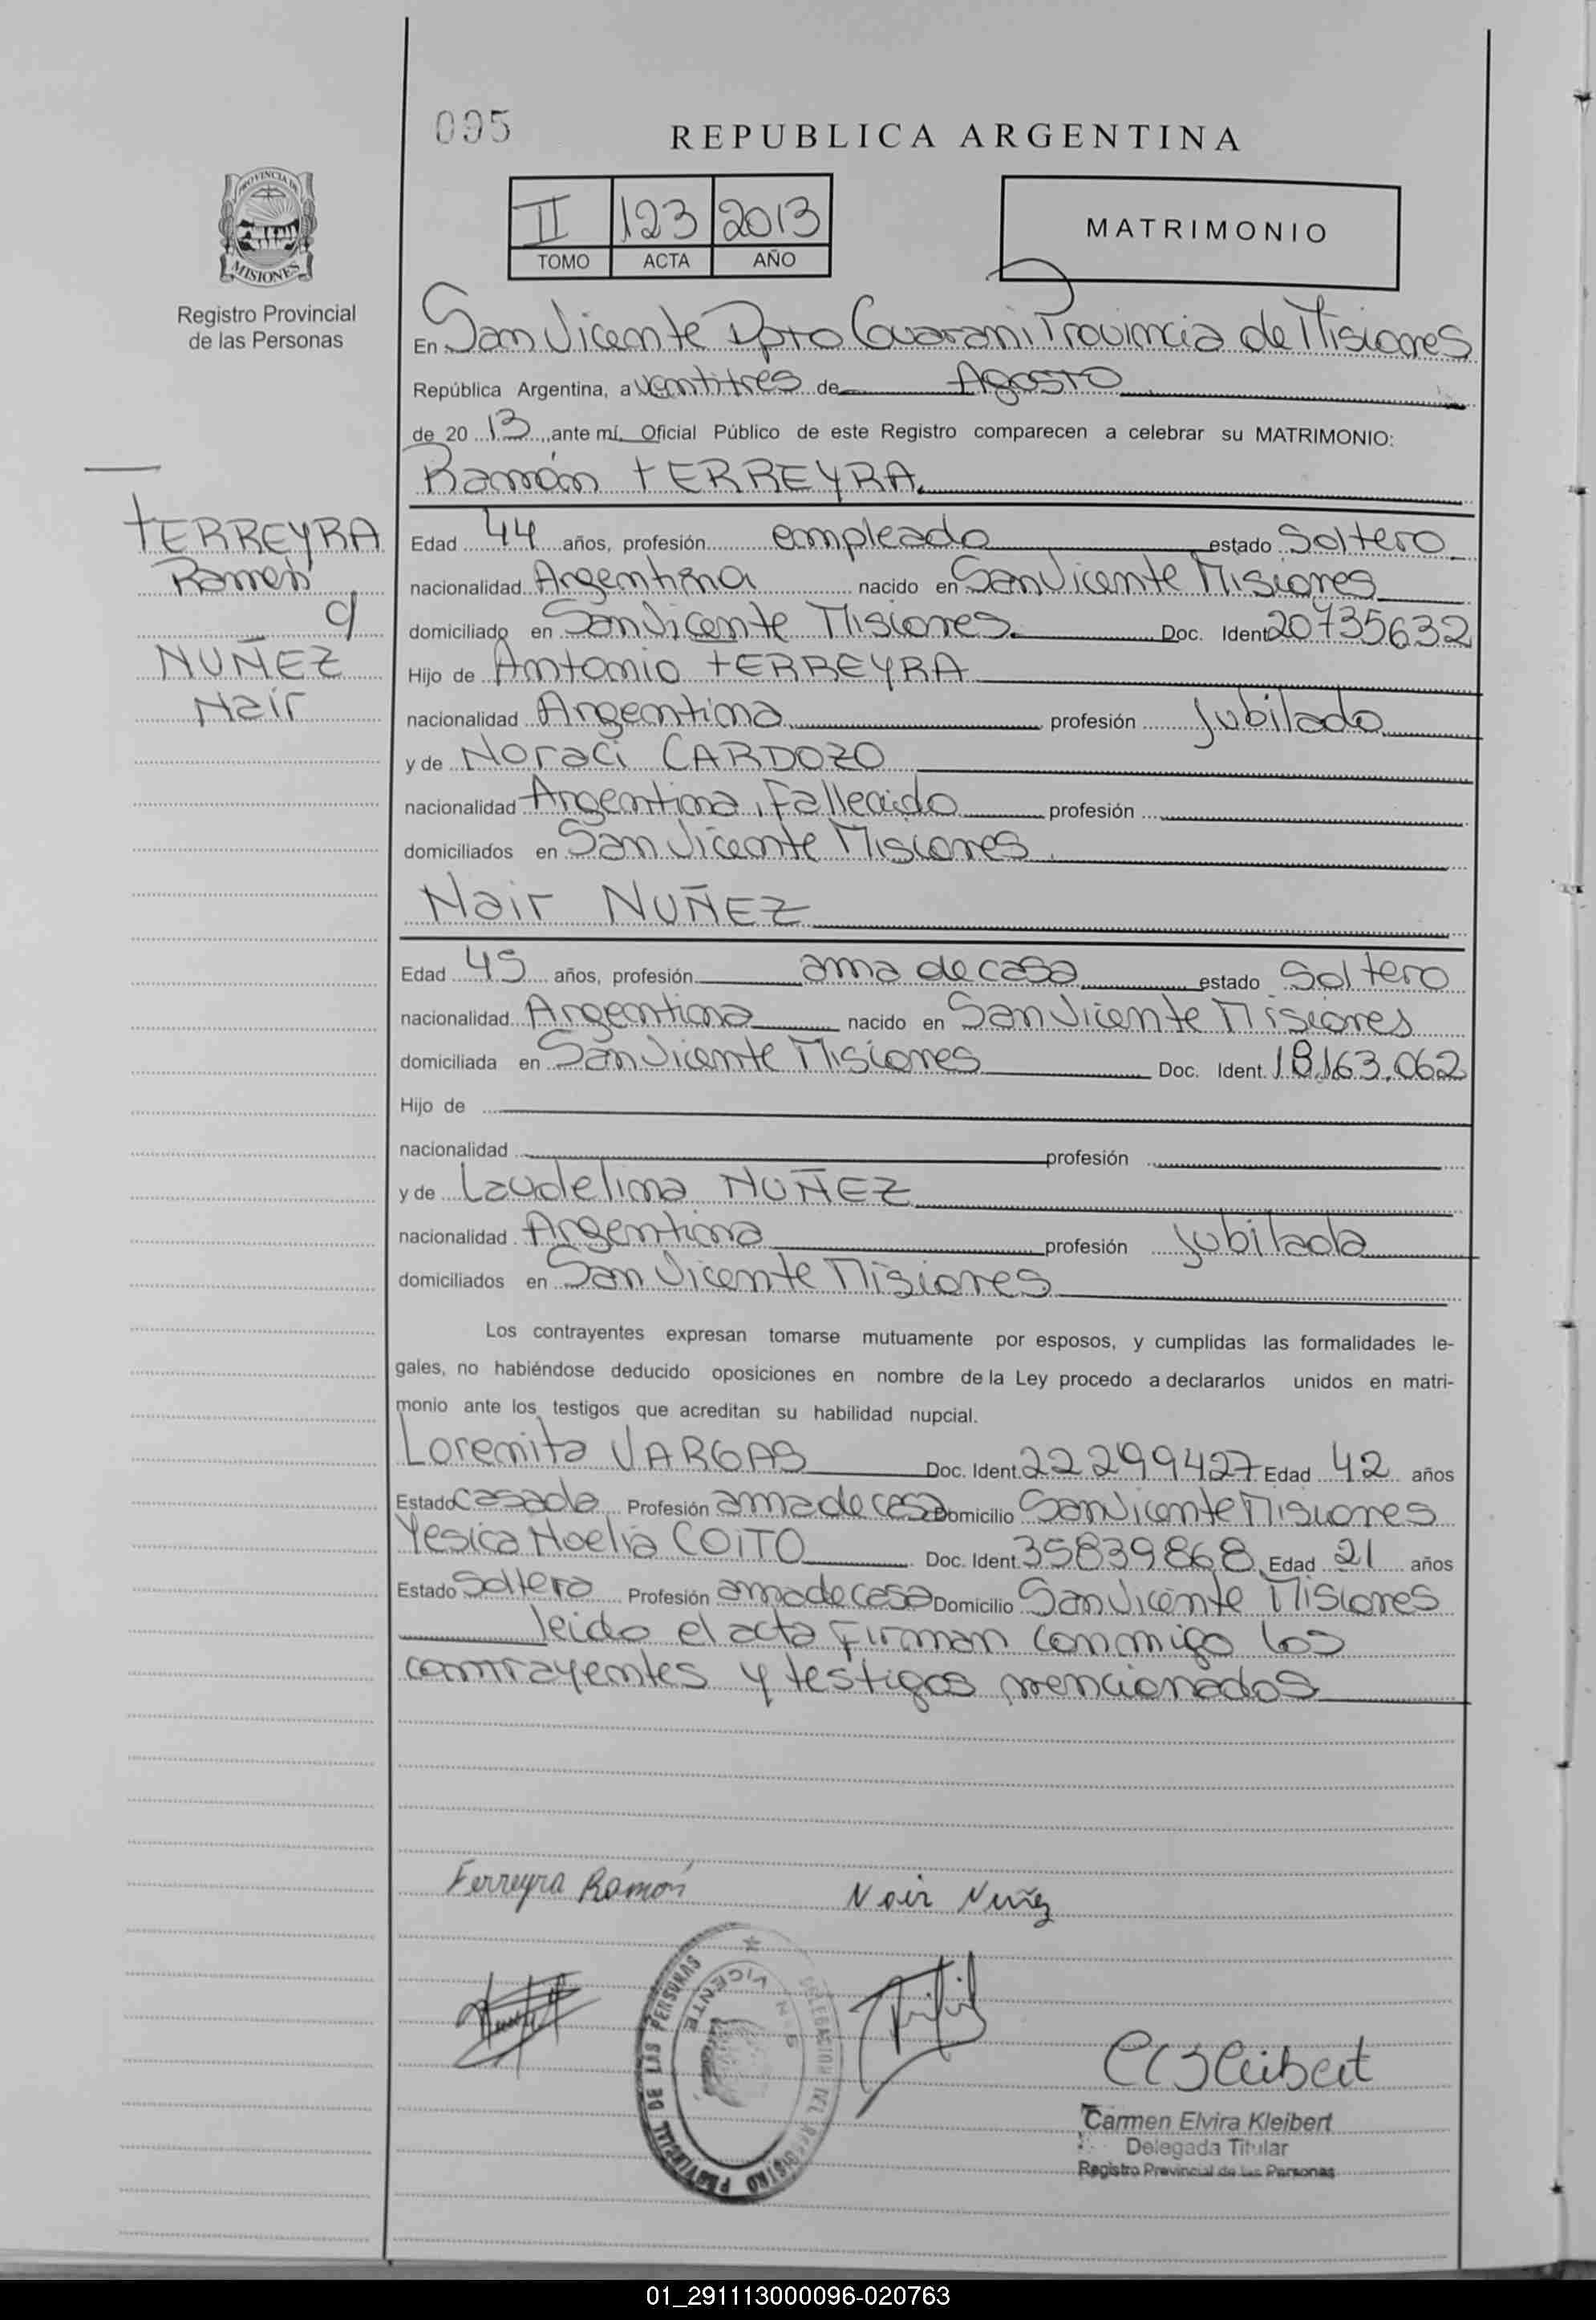 095
REPUBLICA ARGENTINA
PROVINCIA DE
MISIONES
Registro Provincial
de las Personas
II 123 2013
TOMO ACTA AÑO
MATRIMONIO
En San Vicente Dpto Guarani Provincia de Misiones
República Argentina, a ventitres de Agosto
de 20 13 ante mí, Oficial Público de este Registro comparecen a celebrar su MATRIMONIO:
Ramón FERREYRA
FERREYRA
Ramón
c/
NUÑEZ
Nair
Edad 44 años, profesión empleado estado Soltero
nacionalidad Argentina nacido en San Vicente Misiones
domiciliado en San Vicente Misiones Doc. Ident 20735632
Hijo de Antonio FERREYRA
nacionalidad Argentina profesión Jubilado
y de Noraci CARDOZO
nacionalidad Argentina, Fallecido profesión
domiciliados en San Vicente Misiones
Nair NUÑEZ
Edad 45 años, profesión ama de casa estado Soltero
nacionalidad Argentina nacido en San Vicente Misiones
domiciliada en San Vicente Misiones Doc. Ident. 18.163.062
Hijo de
nacionalidad profesión
y de Laudelina NUÑEZ
nacionalidad Argentina profesión Jubilada
domiciliados en San Vicente Misiones
Los contrayentes expresan tomarse mutuamente por esposos, y cumplidas las formalidades le-
gales, no habiéndose deducido oposiciones en nombre de la Ley procedo a declararlos unidos en matri-
monio ante los testigos que acreditan su habilidad nupcial.
Lorenita VARGAS Doc. Ident. 22299427 Edad 42 años
Estado casada Profesión ama de casa Domicilio San Vicente Misiones
Yesica Noelia COITO Doc. Ident. 35839868 Edad 21 años
Estado Soltera Profesión ama de casa Domicilio San Vicente Misiones
leido el acta Firman conmigo los
contrayentes y testigos mencionados
Ferreyra Ramón Nair Nuñez
DELEGACION DEL REGISTRO PROVINCIAL DE LAS PERSONAS
VICENTE
Carmen Elvira Kleibert
Delegada Titular
Registro Provincial de Las Personas
01_291113000096-020763